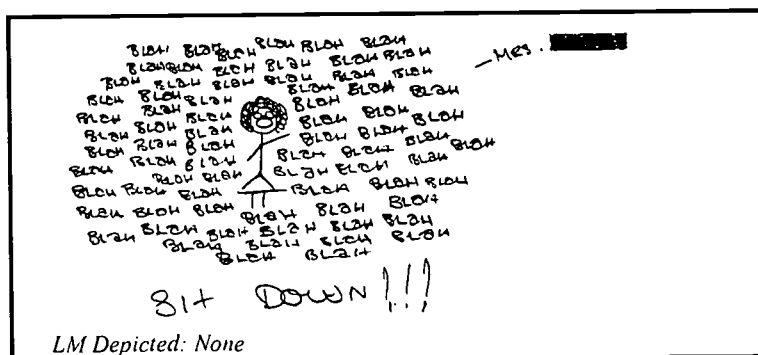 BLAH BLAH BLAH BLAH BLAH
BLAH BLAH BLAH BLAH BLAH BLAH
— MRS.
BLAH BLAH BLAH BLAH BLAH BLAH
BLAH BLAH BLAH BLAH BLAH BLAH
BLAH BLAH BLAH BLAH BLAH BLAH
BLAH BLAH BLAH BLAH BLAH BLAH
BLAH BLAH BLAH BLAH BLAH BLAH
BLAH BLAH BLAH BLAH BLAH BLAH BLAH
BLAH BLAH BLAH BLAH BLAH
BLAH BLAH BLAH BLAH BLAH BLAH
BLAH BLAH BLAH BLAH BLAH BLAH
BLAH BLAH BLAH BLAH BLAH BLAH
BLAH BLAH BLAH BLAH
BLAH BLAH
SIT DOWN!!!
LM Depicted: None